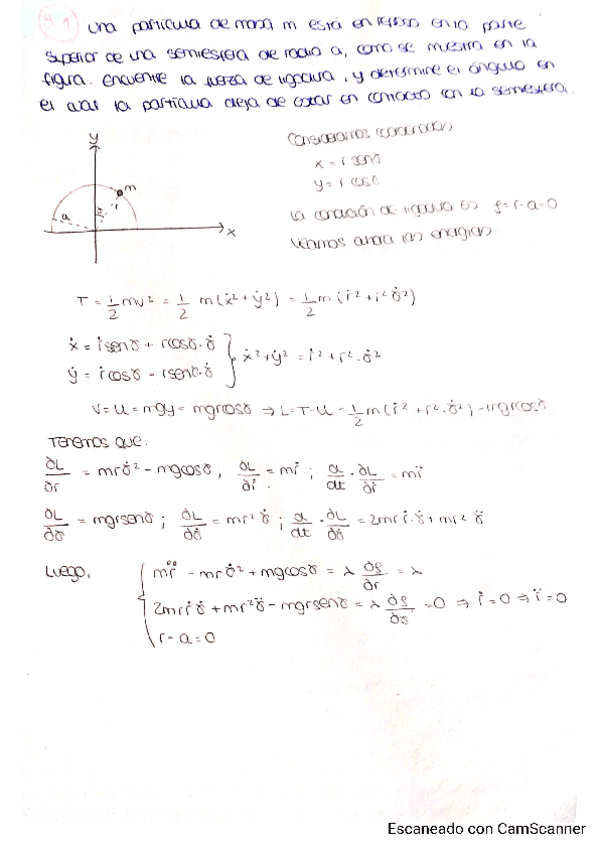 9.1 una partícula de masa m está en reposo en la parte
superior de una semiesfera de radio a, como se muestra en la
figura. encuentre la fuerza de ligadura, y determine el ángulo en
el cual la partícula deja de estar en contacto con la semiesfera.
Consideramos coordenadas
x = r senθ
y = r cosθ
La condición de ligadura es f=r-a=0
Veamos ahora las energías
y
m
a
r
x
T = 1/2 mv² = 1/2 m(ẋ²+ẏ²) = 1/2 m(ṙ²+r²θ̇²)
ẋ = ṙsenθ + rcosθ·θ̇
ẏ = ṙcosθ - rsenθ·θ̇
} ẋ²+ẏ² = ṙ²+r²·θ̇²
V=U=mgy=mgrcosθ ⇒ L=T-U = 1/2 m(ṙ²+r²·θ̇²)-mgrcosθ
Tenemos que:
∂L/∂r = mrθ̇²-mgcosθ ; ∂L/∂ṙ = mṙ ; d/dt · ∂L/∂ṙ = mr̈
∂L/∂θ = mgrsenθ ; ∂L/∂θ̇ = mr²θ̇ ; d/dt · ∂L/∂θ̇ = 2mrṙ·θ̇+mr²θ̈
Luego,
{ mr̈ - mrθ̇²+mgcosθ = λ ∂f/∂r = λ
2mrṙθ̇+mr²θ̈-mgrsenθ = λ ∂f/∂θ = 0 ⇒ ṙ=0 ⇒ r̈=0
r-a=0
Escaneado con CamScanner